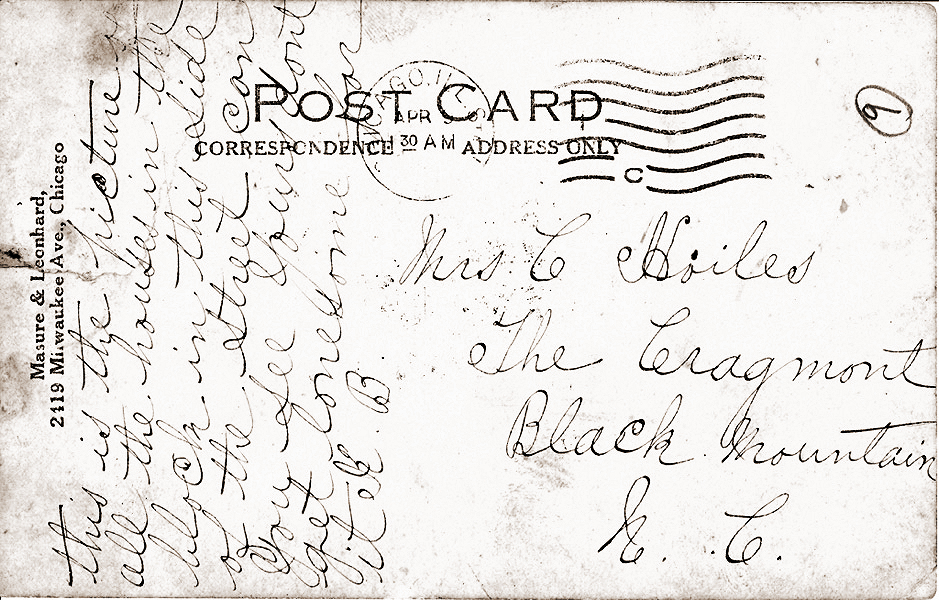 POST CARD
CORRESPONDENCE
ADDRESS ONLY
CHICAGO ILL
APR
30 AM
C
9
Masure & Leonhard,
2419 Milwaukee Ave., Chicago
this is the picture
all the houses in the
block in this side
of the street can
you see yours dont
get lonesome for
it
B
Mrs C Hoiles
The Cragmont
Black Mountain
N. C.